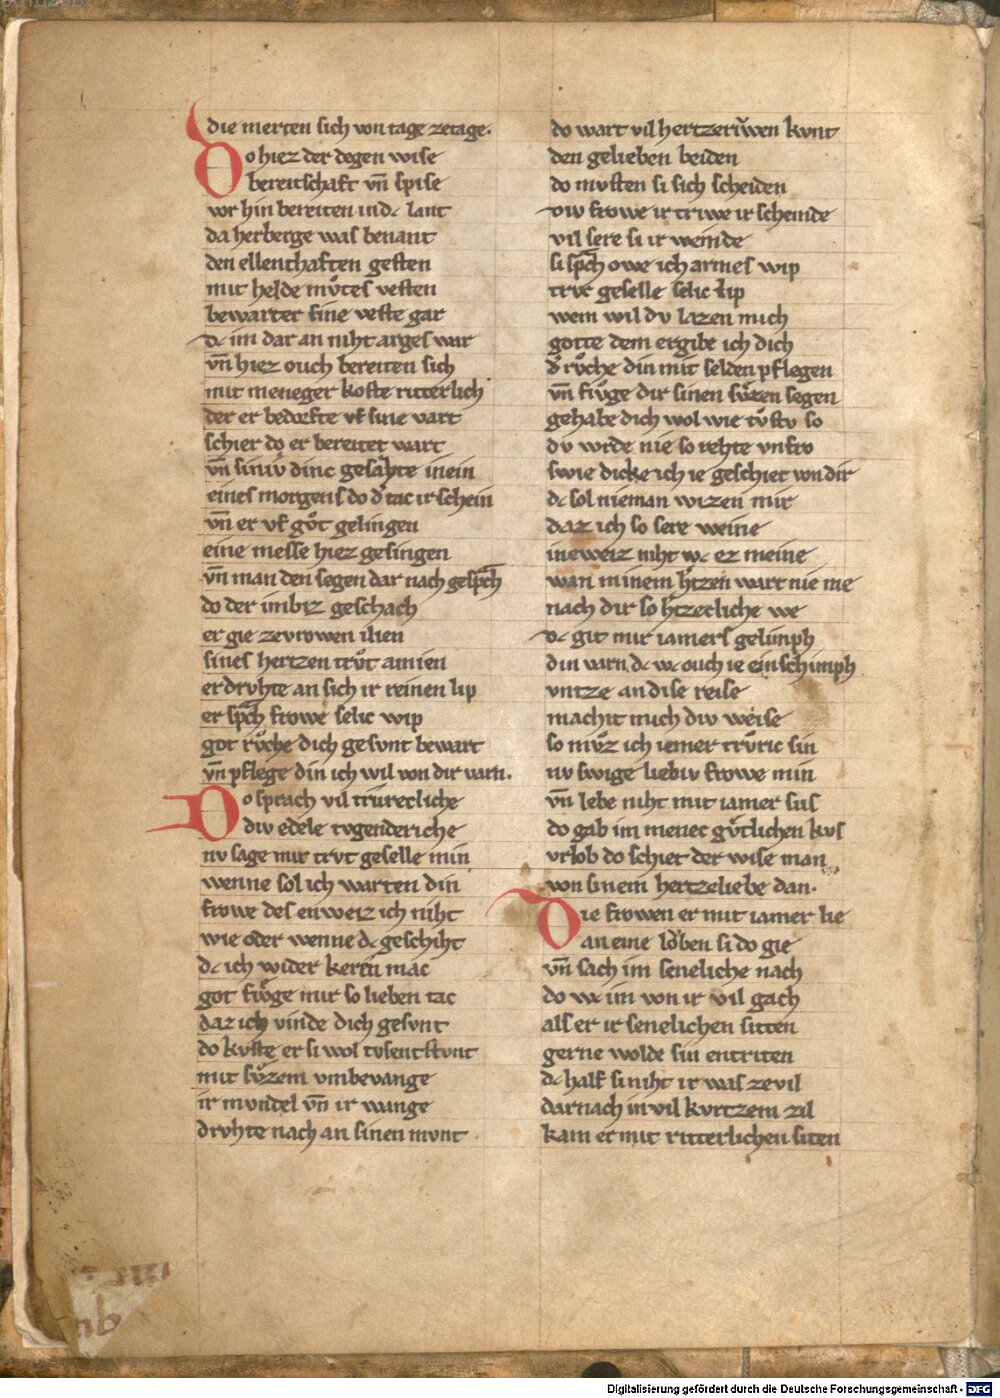 die merten sich von tage zetage.
Do hiez der degen wise
bereitschaft vn̄ spise
vor hin bereiten in dc lant
da herberge was benant
den ellenthaften gesten
mit helde mv̊tes vesten
bewarter sine veste gar
dc im dar an niht arges war
vn̄ hiez ouch bereiten sich
mit meneger koste ritterlich
der er bedorfte vf sine vart
schier do er bereitet wart
vn̄ siniv dinc gesahte inein
eines morgens do d͛ tac irschein
vn̄ er vf gv̊t gelingen
eine messe hiez gesingen
vn̄ man den segen dar nach gesp̄ch
do der imbiz geschach
er gie zevrowen ilien
sines hertzen trv̊t amien
er drvhte an sich ir reinen lip
er sp̄ch frowe selic wip
got rv̊che dich gesvnt bewart
vn̄ pflege din ich wil von dir varn.
Do sprach vil trureclîche
div edele tvgenderiche
nv sage mir trvt geselle min
wenne sol ich warten din
frowe des enweiz ich niht
wie oder wenne dc geschiht
dc ich wider keren mac
got fv̊ge mir so lieben tac
daz ich vinde dich gesvnt
do kvste er si wol tvsentstvnt
mit sv̊zem vmbevange
ir mvndel vn̄ ir wange
drvhte nach an sinen mvnt
do wart vil hertzerv̊wen kvnt
den gelieben beiden
do mvsten si sich scheiden
div frowe ir triwe ir scheinde
vil sere si ir weinde
si sp̄ch owe ich armes wip
trvt geselle selic lip
wem wil dv lazen mich
gotte dem ergibe ich dich
d͛ rv̊che din mit selden pflegen
vn̄ fv̊ge dir sinen sv̊zen segen
gehabe dich wol wie tv̊stv so
dv wrde nie so rehte vnfro
swie dicke ich ie geschiet von dir
dc sol nieman wizen mir
daz ich so sere weine
ine weiz niht wc ez meine
wan minem h͛tzen wart nie me
nach dir so h͛tzecliche we
dc git mir iamers gelimph
din varn dc wc ouch ie ein schimph
vntze an dise reise
machit mich div weise
so mv̊z ich iemer trv̊ric sin
nv swige liebiv frowe min
vn̄ lebe niht mit iamer sus
do gab im menec gv̊tlichen kvs
vrlob do schiet der wise man
von sinem hertzeliebe dan.
Die frowen er mit iamer lie
an eine lo͛ben si do gie
vn̄ sach im seneliche nach
do wc im von ir vil gach
als er ir senelichen sitten
gerne wolde sin entriten
dc half si niht ir was zevil
darnach in vil kvrtzem zil
kam er mit ritterlichen siten
nb
Digitalisierung gefördert durch die Deutsche Forschungsgemeinschaft - DFG